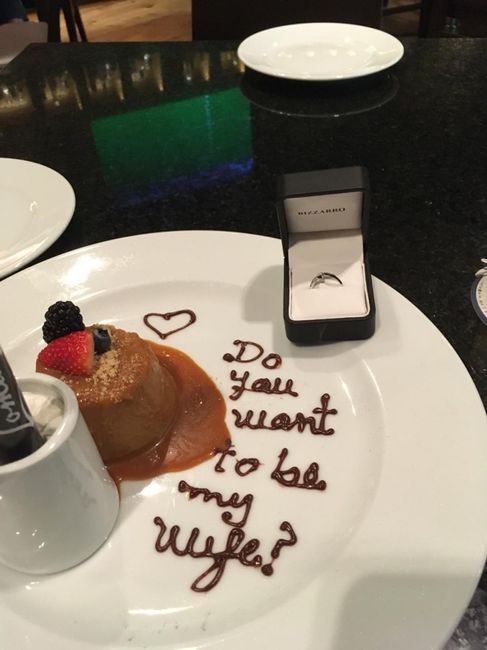 BIZZARRO
Do
you
want
to be
my
Wife?